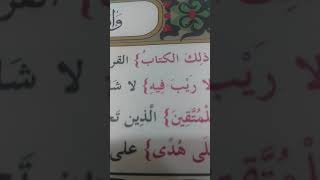 ذَلِكَ الكتابُ} القر
لا رَيْبَ فِيهِ} لا شَـ
لْمُتَّقِينَ} الَّذِين تَـ
لَى هُدًى} على